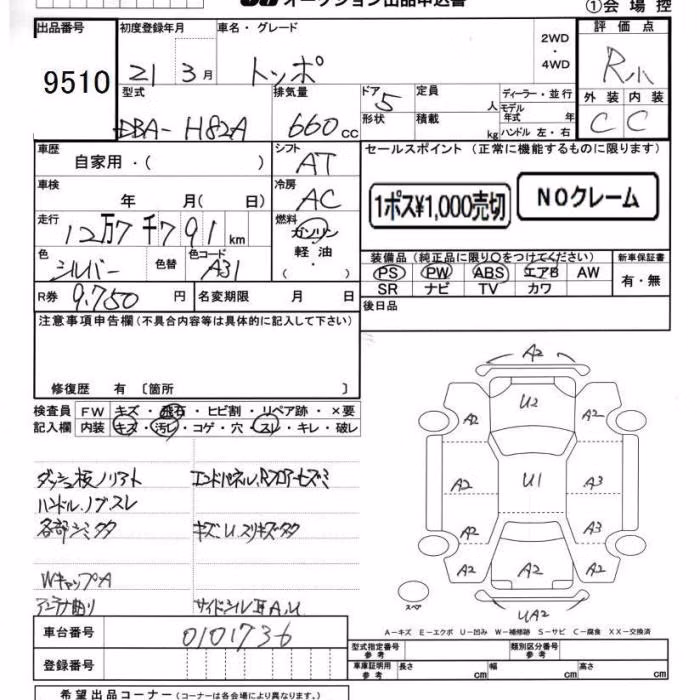 オークション出品申込書
①会場控
出品番号 初度登録年月 車名・グレード 2WD・4WD 評価点
9510 21 3月 トッポ R小
型式 排気量 ドア 5 定員 人 ディーラー・並行
外装 内装
形状 積載 kg モデル年式 年
ハンドル 左・右
DBA-H82A 660cc C C
車歴 自家用・( ) シフト AT
セールスポイント (正常に機能するものに限ります)
車検 年 月( 日) 冷房 AC
1ポス¥1,000売切 NOクレーム
走行 12万7千791km 燃料 ガソリン
軽油
・( )
色 シルバー 色替 色コード A31
装備品 (純正品に限り○をつけてください) 新車保証書
PS PW ABS エアB AW 有・無
SR ナビ TV カワ
R券 9,750円 名変期限 月 日
後日品
注意事項申告欄 (不具合内容等は具体的に記入して下さい)
修復歴 有 〔箇所 〕
検査員 FW キズ・飛石・ヒビ割・リペア跡・×要
記入欄 内装 キズ・汚レ・コゲ・穴・スレ・キレ・破レ
ダッシュ板ノリアト エンドパネル、Rフロアーセズミ
ハンドル、ノブスレ
各部シミタタ キズ、U、スリキズタタ
WキャップA
アンテナ曲り サイドシルエA、U
A2
A2 U2 A2
A2 U1 A3
A2 A3
A2 A2 A2
スペア
UA2
車台番号 0101736
A-キズ E-エクボ U-凹み W-補修跡 S-サビ C-腐食 XX-交換済
型式指定番号 参考 類別区分番号 参考
登録番号
車庫証明用 参考 長さ cm 幅 cm 高さ cm
希望出品コーナー (コーナーは各会場により異なります。)